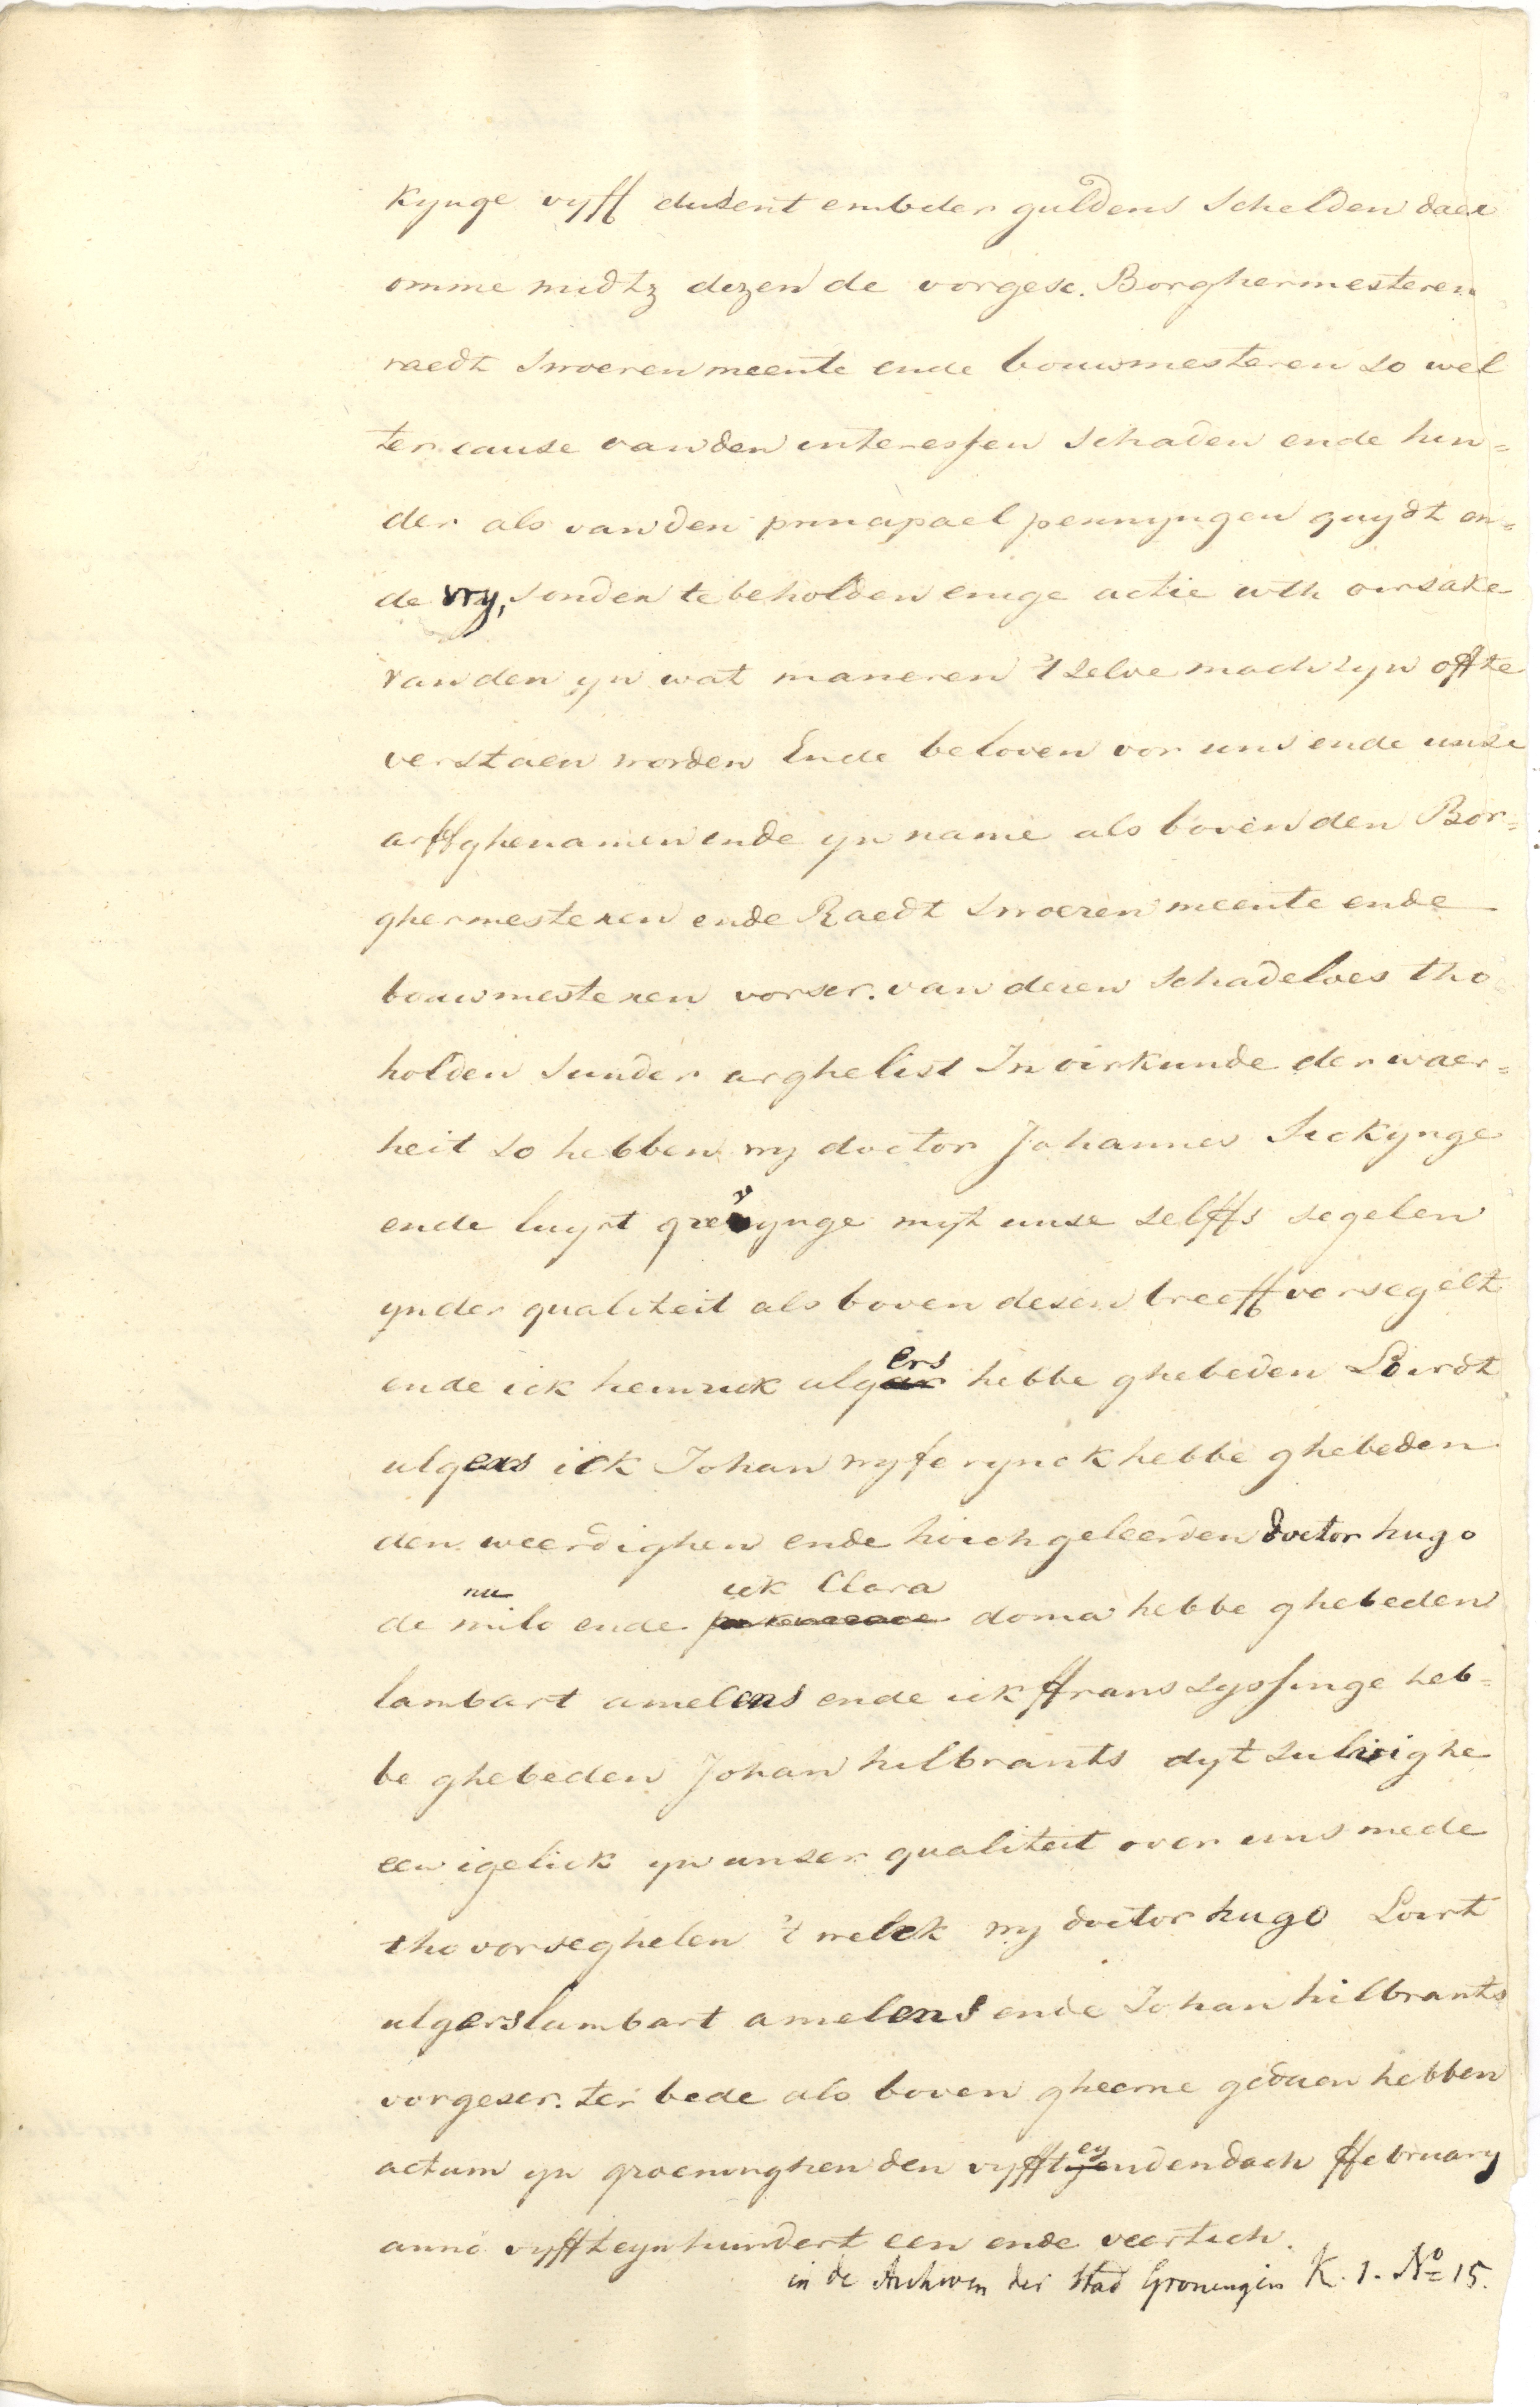 kynge vyff dusent embder guldens Schelden daer
omme midtz dezen de vorgesc. Borghermesteren
raedt Swoeren meente ende bouwmesteren so wel
ter cause van den interessen schaden ende hin=
der als van den principael pennyngen quydt en=
de vry, sonder te beholden enige actie uth oirsake
van den yn wat maneren 't selve mach syn offte
verstaen worden Ende beloven vor uns ende unse
arffghenamen ende yn name als boven den Bor=
ghermesteren ende Raedt Swoeren meente ende
bouwmesteren vorscr. van dezen schadeloes tho
holden sunder arghelist In oirkunde der waer=
heit so hebben wy doctor Johannes Sickynge
ende luyrt grevynge myt unse selffs segelen
yn der qualiteit als boven desen breeff versegelt
ende ick heinrick ulgers hebbe ghebeden Loirdt
ulgers ick Johan wyferynck hebbe ghebeden
den weerdighen ende hoichgeleerden doctor hugo
nu ick Clara
de milo ende doma hebbe ghebeden
lambart amelens ende ick ffrans syssinge heb=
be ghebeden Johan hilbrants dyt sulvighe
een igelick yn unser qualiteit over uns mede
tho vorseghelen 't welck wy doctor hugo Loirt
ulgers lambart amelens ende Johan hilbrants
vorgescr. ter bede als boven gheerne gedaen hebben
actum yn groeninghen den vyffteyenden dach ffebruary
anno vyffteyn hundert een ende veertich.
in de Archiven der Stad Groningen K. 1. No 15.